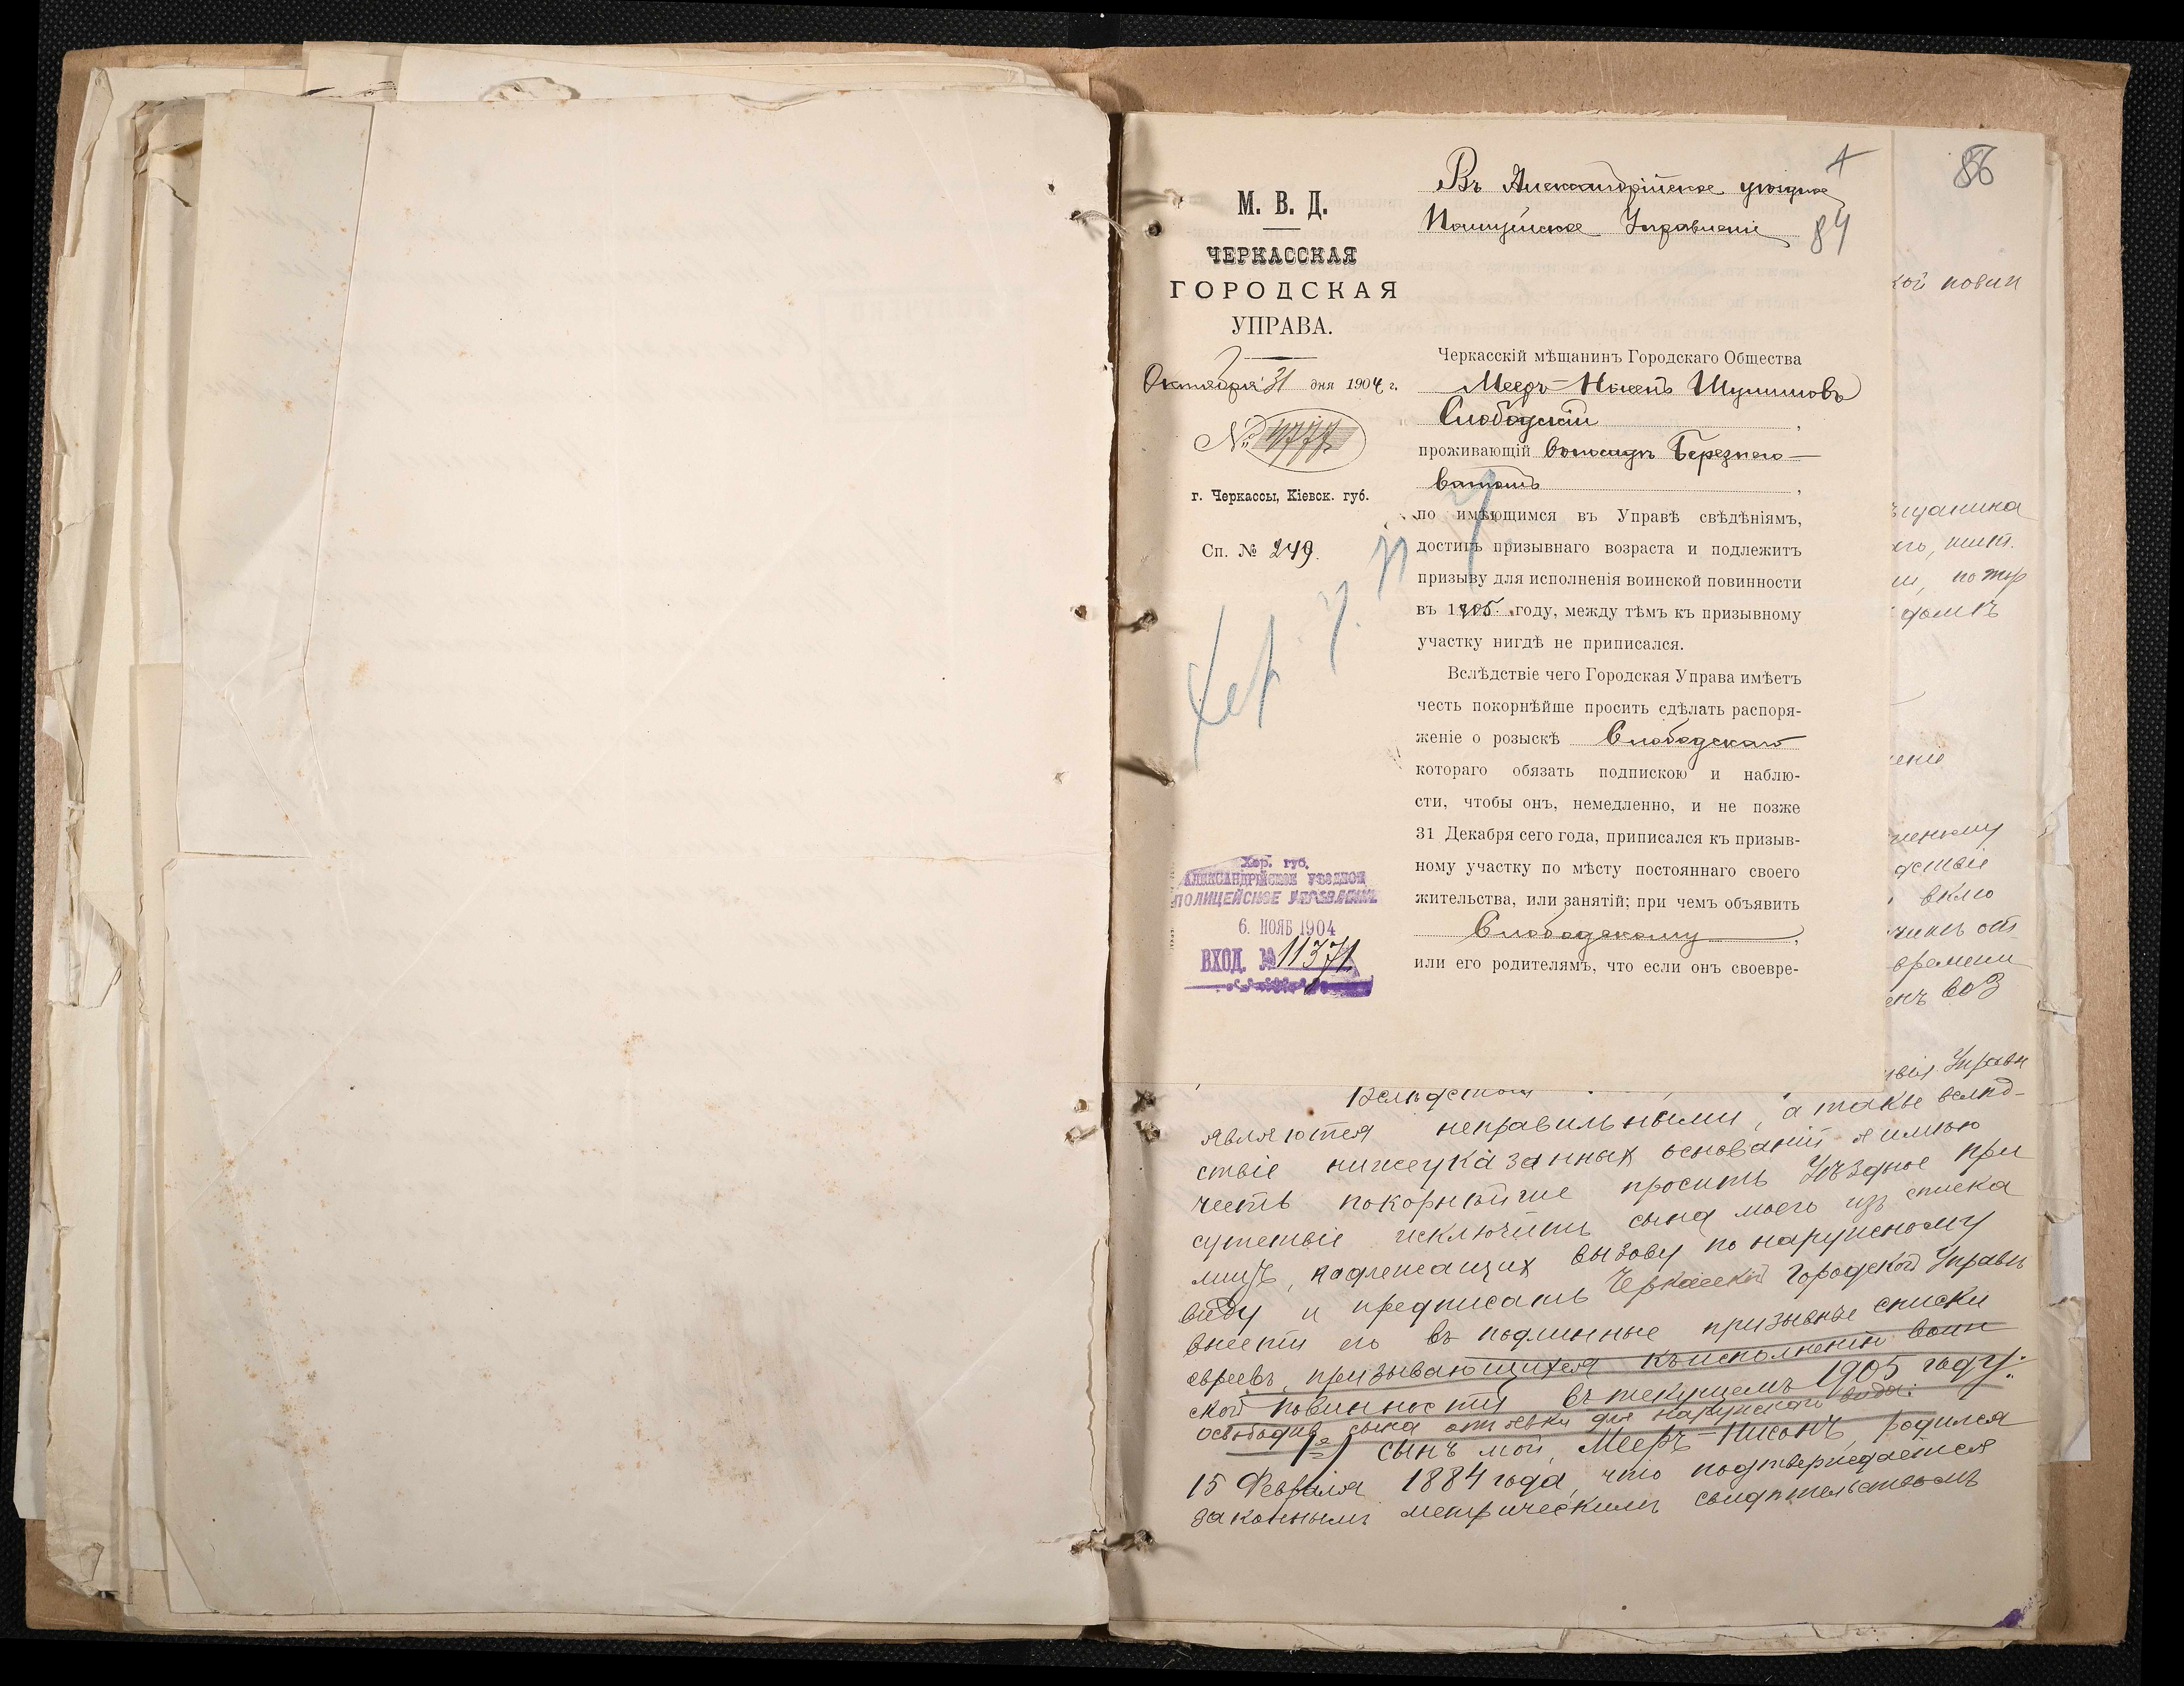 86
Въ Александрійское уѣздное
Полицейское Управленіе
84
М. В. Д.
ЧЕРКАССКАЯ
ГОРОДСКАЯ
УПРАВА.
Октября 31 дня 1904 г.
№ 4777
г. Черкассы, Кіевск. губ.
Сп. № 249.
Черкасскій мѣщанинъ Городскаго Общества
Мееръ-Нисенъ Шулимовъ
Слободскій,
проживающій въ посадѣ Березнего-
ватомъ,
по имѣющимся въ Управѣ свѣдѣніямъ,
достигъ призывнаго возраста и подлежитъ
призыву для исполненія воинской повинности
въ 1905 году, между тѣмъ къ призывному
участку нигдѣ не приписался.
Вслѣдствіе чего Городская Управа имѣетъ
честь покорнѣйше просить сдѣлать распоря-
женіе о розыскѣ Слободскаго
котораго обязать подпискою и наблю-
сти, чтобы онъ, немедленно, и не позже
31 Декабря сего года, приписался къ призыв-
ному участку по мѣсту постояннаго своего
жительства, или занятій; при чемъ объявить
Слободскому,
или его родителямъ, что если онъ своевре-
Хер. губ.
АЛЕКСАНДРІЙСКОЕ УѢЗДНОЕ
ПОЛИЦЕЙСКОЕ УПРАВЛЕНІЕ
6. НОЯБ 1904
ВХОД. № 11371
кой повин
домъ
времени
воз
Управы
являются неправильными, а также вслѣд-
ствіе нижеуказанныхъ основаній я имѣю
честь покорнѣйше просить Уѣздное При
сутствіе исключить сына моего изъ списка
лицъ, подлежащихъ вызову по наружному
виду и предписать Черкасской Городской Управѣ
внести его въ подлинные призывные списки
евреевъ, призывающихся къ исполненію воин
ской повинности въ текущемъ 1905 году:
освободивъ сына отъ явки для наружнаго вида:
1е/ сынъ мой, Мееръ-Нисонъ, родился
15 Февраля 1884 года, что подтверждается
законнымъ метрическимъ свидѣтельствомъ